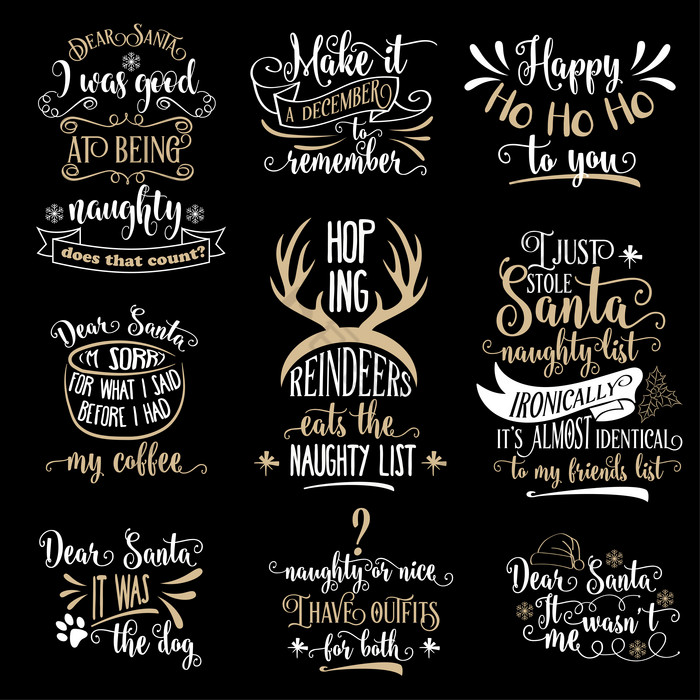 DEAR SANTA
I was good
AT BEING
naughty
does that count?
Make it
A DECEMBER
to
remember
Happy
HO HO HO
to you
Dear Santa
I'M SORRY
FOR WHAT I SAID
BEFORE I HAD
my coffee
HOP
ING
REINDEERS
eats the
NAUGHTY LIST
I JUST
STOLE
Santa
naughty list
IRONICALLY
IT'S ALMOST IDENTICAL
to my friends list
Dear Santa
IT WAS
the dog
?
naughty or nice
I HAVE OUTFITS
for both
Dear Santa
It wasn't
me